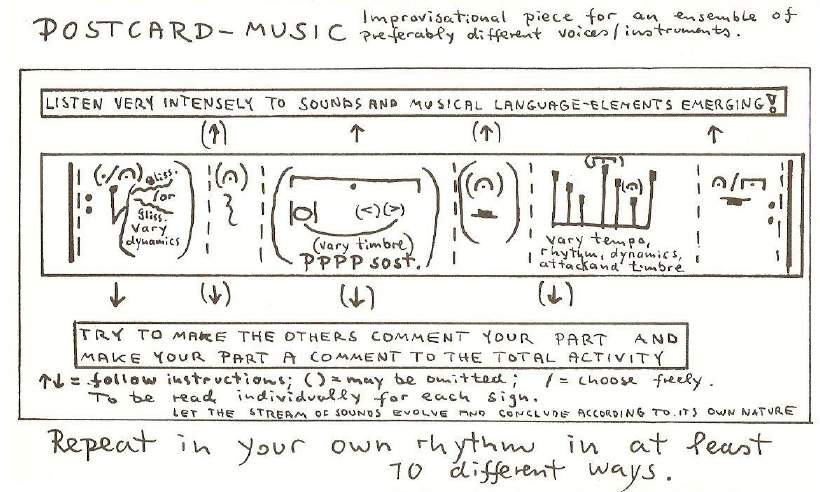 POSTCARD-MUSIC
Improvisational piece for an ensemble of
preferably different voices/instruments.
LISTEN VERY INTENSELY TO SOUNDS AND MUSICAL LANGUAGE-ELEMENTS EMERGING!
gliss.
for
gliss.
vary
dynamics
(vary timbre)
PPPP sost.
vary tempo,
rhythm, dynamics,
attack and timbre
TRY TO MAKE THE OTHERS COMMENT YOUR PART AND
MAKE YOUR PART A COMMENT TO THE TOTAL ACTIVITY
↑↓ = follow instructions; ( ) = may be omitted; / = choose freely.
To be read individually for each sign.
LET THE STREAM OF SOUNDS EVOLVE AND CONCLUDE ACCORDING TO ITS OWN NATURE
Repeat in your own rhythm in at least
10 different ways.